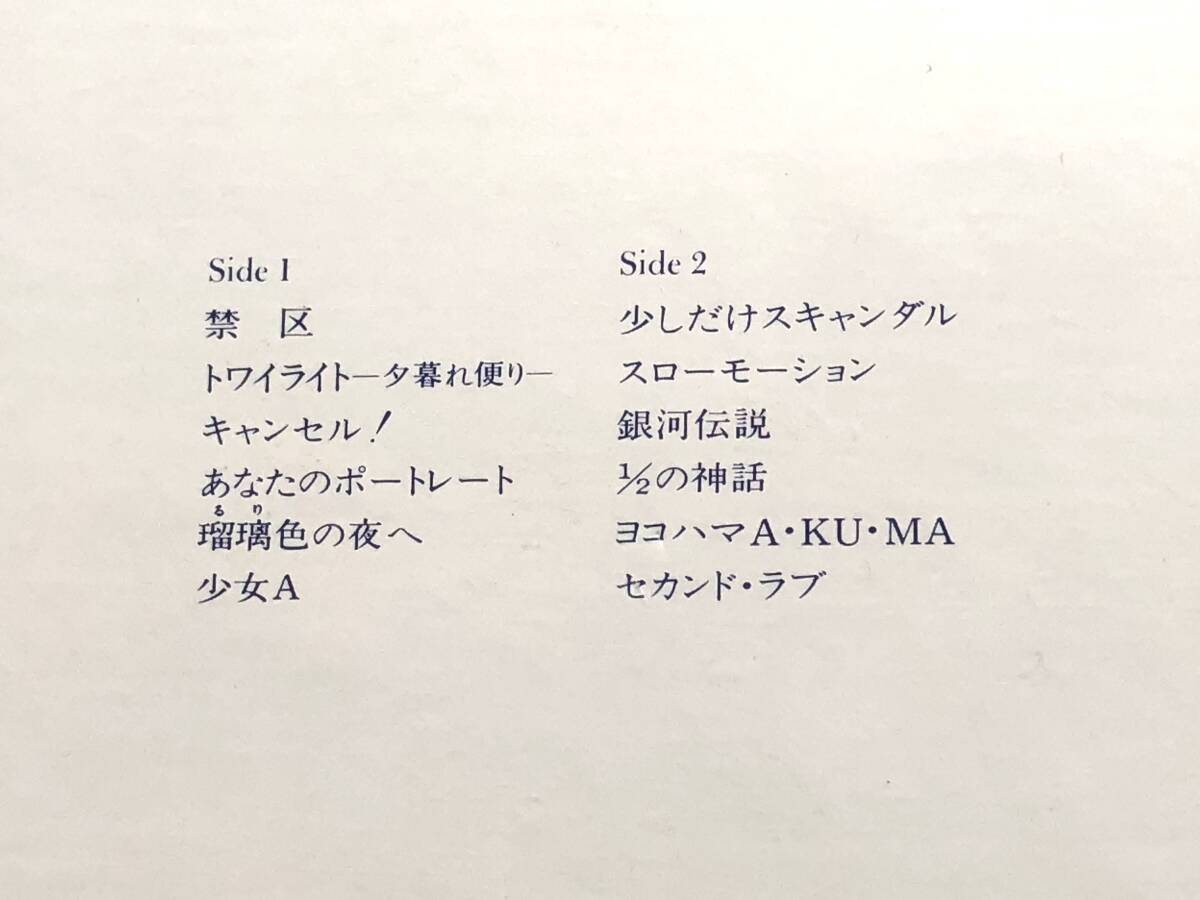 Side 1
禁 区
トワイライト―夕暮れ便り―
キャンセル!
あなたのポートレート
るり
瑠璃色の夜へ
少女A
Side 2
少しだけスキャンダル
スローモーション
銀河伝説
1/2の神話
ヨコハマA・KU・MA
セカンド・ラブ